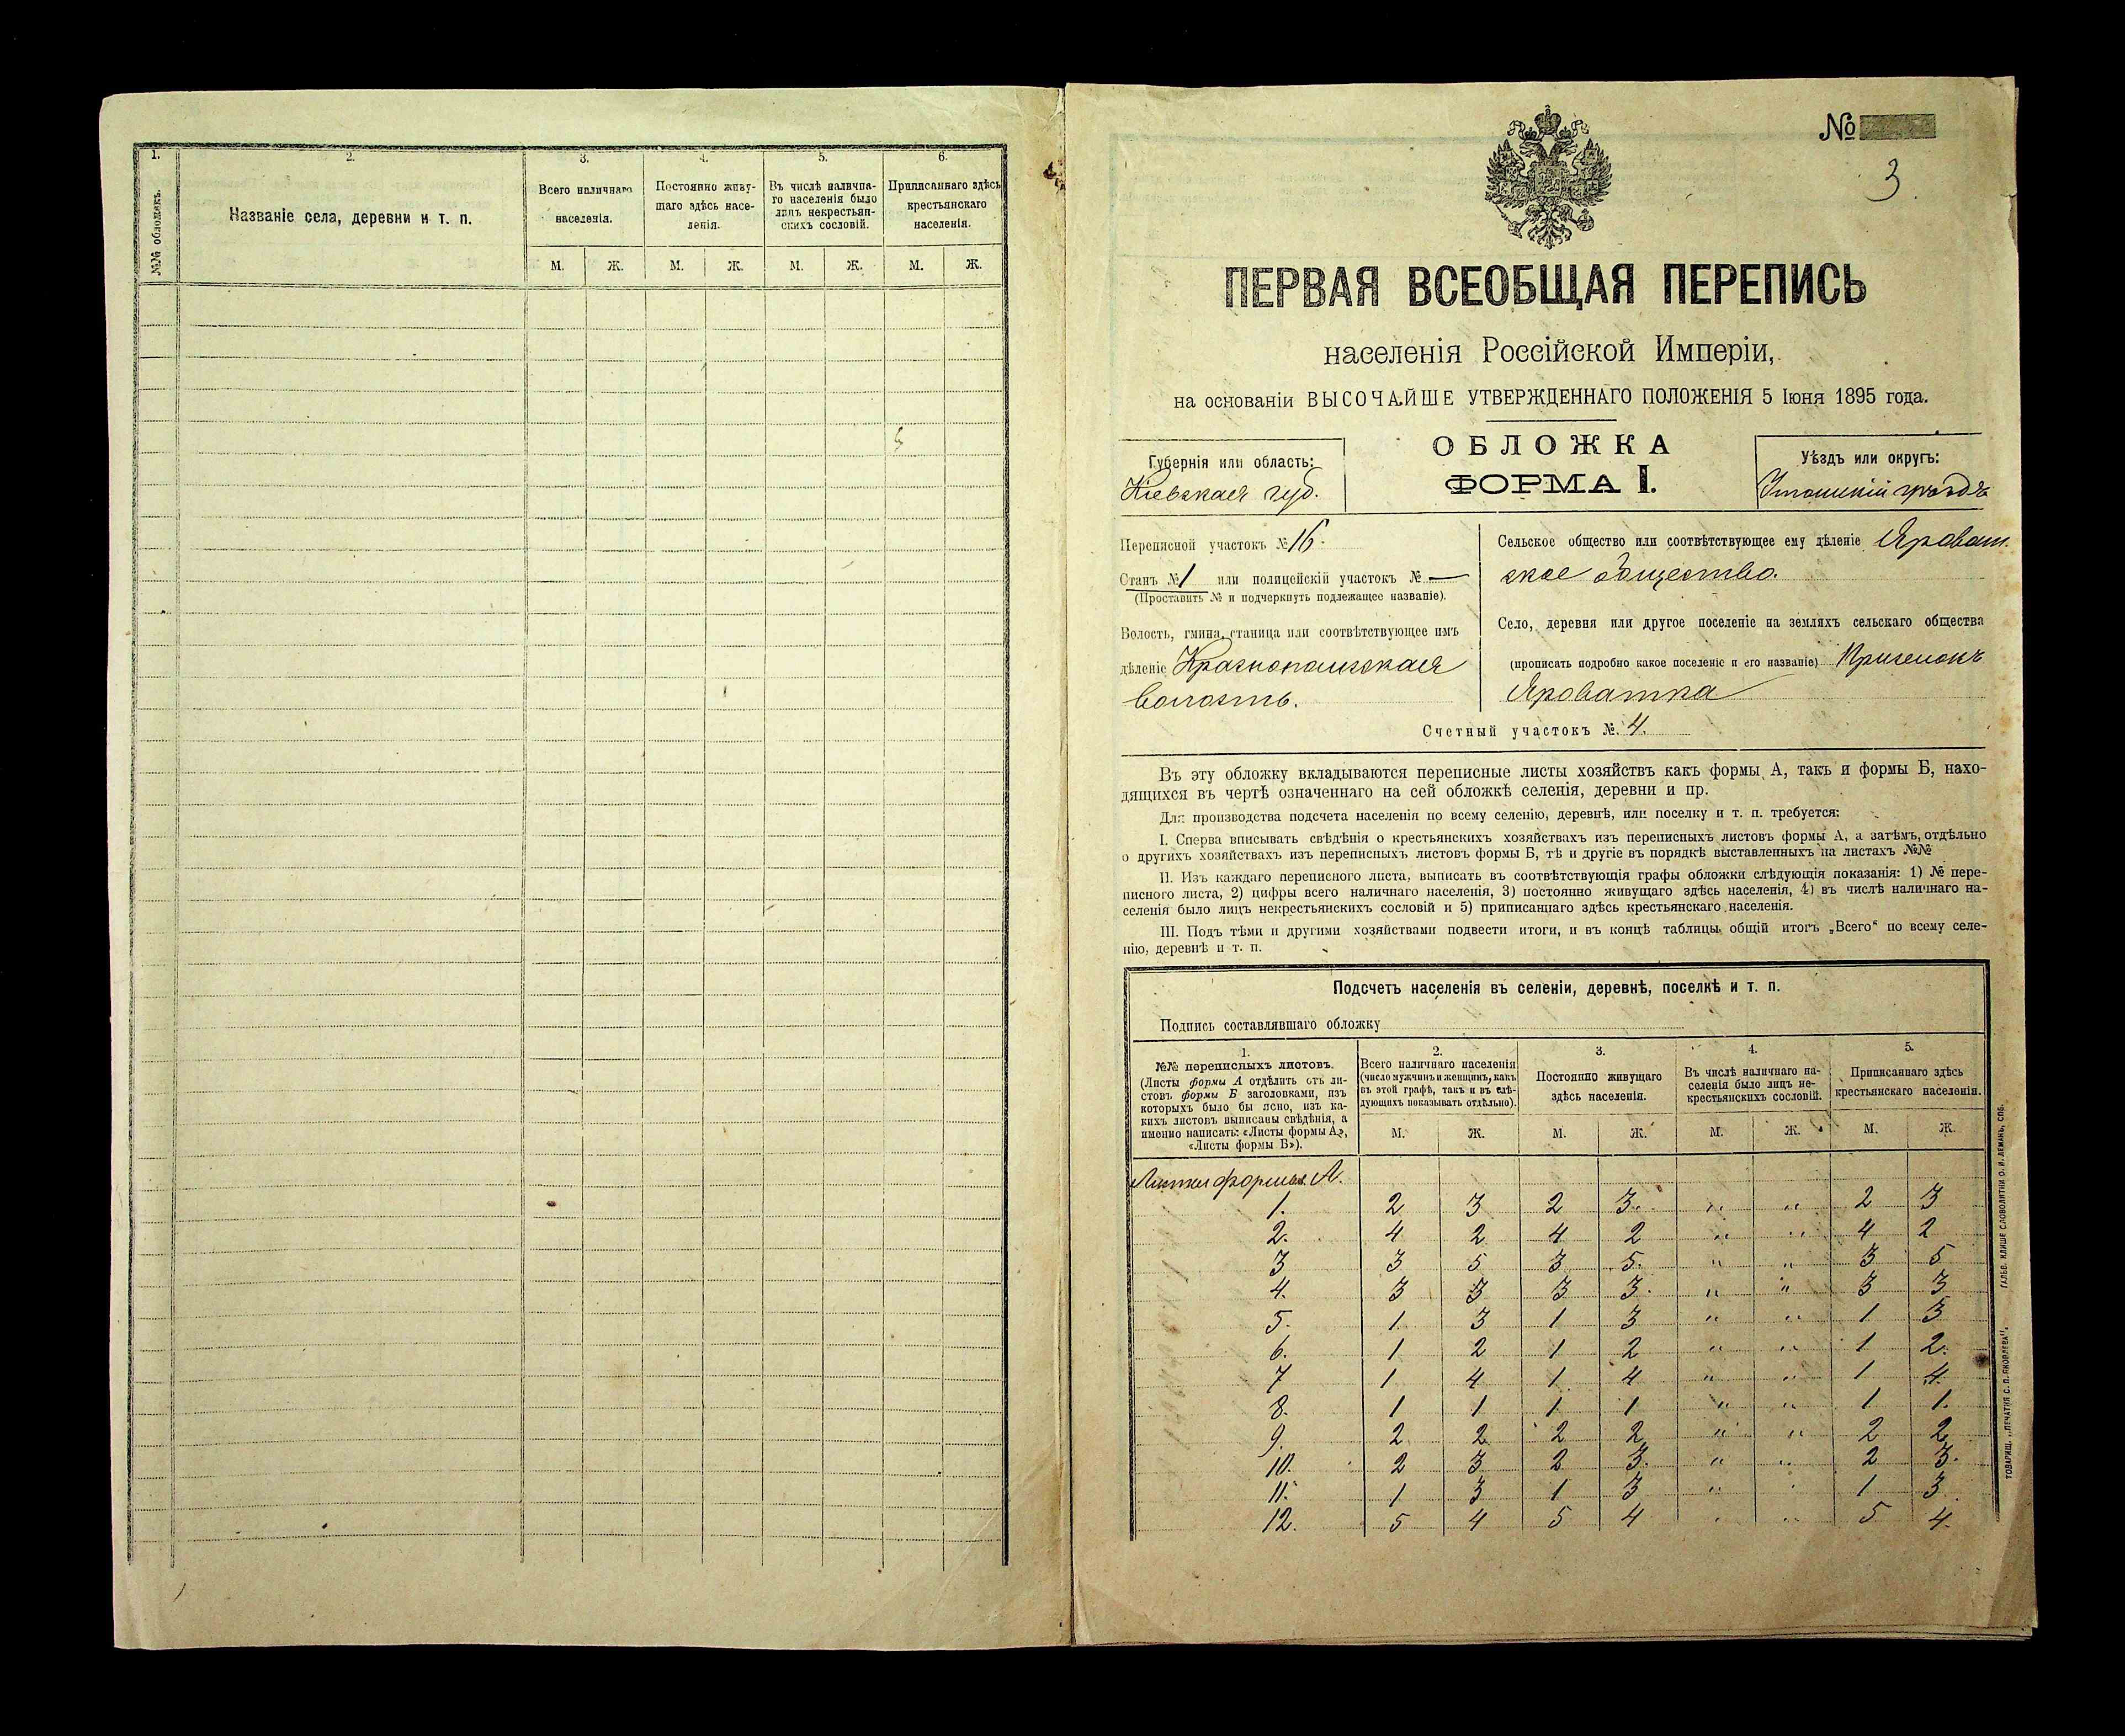 1. 2. 3. 4. 5. 6.
№№ обложекъ.
Названіе села, деревни и т. п.
Всего наличнаго
населенія.
Постоянно живу-
щаго здѣсь насе-
ленія.
Въ числѣ налична-
го населенія было
лицъ некрестьян-
скихъ сословій.
Приписаннаго здѣсь
крестьянскаго
населенія.
М. Ж. М. Ж. М. Ж. М. Ж.
№
3.
ПЕРВАЯ ВСЕОБЩАЯ ПЕРЕПИСЬ
населенія Россійской Имперіи,
на основаніи ВЫСОЧАЙШЕ УТВЕРЖДЕННАГО ПОЛОЖЕНІЯ 5 Іюня 1895 года.
ОБЛОЖКА
ФОРМА I.
Губернія или область:
Кіевская губ.
Уѣздъ или округъ:
Уманскій уѣздъ
Переписной участокъ № 16.
Станъ № 1 или полицейскій участокъ № —
(Проставить № и подчеркнуть подлежащее названіе).
Волость, гмина, станица или соотвѣтствующее имъ
дѣленіе Краснопольская
волость.
Сельское общество или соотвѣтствующее ему дѣленіе Яроват.
ское общество.
Село, деревня или другое поселеніе на земляхъ сельскаго общества
(прописать подробно какое поселеніе и его названіе) Приселокъ
Яроватка
Счетный участокъ № 4.
Въ эту обложку вкладываются переписные листы хозяйствъ какъ формы А, такъ и формы Б, нахо-
дящихся въ чертѣ означеннаго на сей обложкѣ селенія, деревни и пр.
Для производства подсчета населенія по всему селенію, деревнѣ, или поселку и т. п. требуется:
I. Сперва вписывать свѣдѣнія о крестьянскихъ хозяйствахъ изъ переписныхъ листовъ формы А, а затѣмъ, отдѣльно
о другихъ хозяйствахъ изъ переписныхъ листовъ формы Б, тѣ и другіе въ порядкѣ выставленныхъ на листахъ №№
II. Изъ каждаго переписного листа, выписать въ соотвѣтствующія графы обложки слѣдующія показанія: 1) № пере-
писного листа, 2) цифры всего наличнаго населенія, 3) постоянно живущаго здѣсь населенія, 4) въ числѣ наличнаго на-
селенія было лицъ некрестьянскихъ сословій и 5) приписаннаго здѣсь крестьянскаго населенія.
III. Подъ тѣми и другими хозяйствами подвести итоги, и въ концѣ таблицы, общій итогъ „Всего“ по всему селе-
нію, деревнѣ и т. п.
Подсчетъ населенія въ селеніи, деревнѣ, поселкѣ и т. п.
Подпись составлявшаго обложку
1.
№№ переписныхъ листовъ.
(Листы формы А отдѣлить отъ ли-
стовъ формы Б заголовками, изъ
которыхъ было бы ясно, изъ ка-
кихъ листовъ выписаны свѣдѣнія, а
именно написать: «Листы формы А»,
«Листы формы Б»).
2.
Всего наличнаго населенія
(число мужчинъ и женщинъ, какъ
въ этой графѣ, такъ и въ слѣ-
дующихъ показывать отдѣльно).
3.
Постоянно живущаго
здѣсь населенія.
4.
Въ числѣ наличнаго на-
селенія было лицъ не-
крестьянскихъ сословій.
5.
Приписаннаго здѣсь
крестьянскаго населенія.
М. Ж. М. Ж. М. Ж. М. Ж.
Листы формы А.
1. 2 3 2 3. „ „ 2 3
2. 4 2 4 2 „ „ 4 2
3 3 5 3 5. „ „ 3 5
4. 3 3 3 3. „ „ 3 3
5. 1. 3 1 3 „ „ 1 3
6. 1 2 1 2 „ „ 1 2.
7 1 4 1. 4 „ „ 1 4.
8. 1 1 1 1 „ „ 1 1.
9. 2 2 2 2 „ „ 2 2
10. 2 3 2 3. „ „ 2 3.
11. 1 3 1 3 „ „ 1 3
12. 5 4 5 4 „ „ 5 4.
ТОВАРИЩ. „ПЕЧАТНЯ С. П. ЯКОВЛЕВА“. ГАЛЬВ. КЛИШЕ СЛОВОЛИТНИ О. И. ЛЕМАНЪ, СПБ.